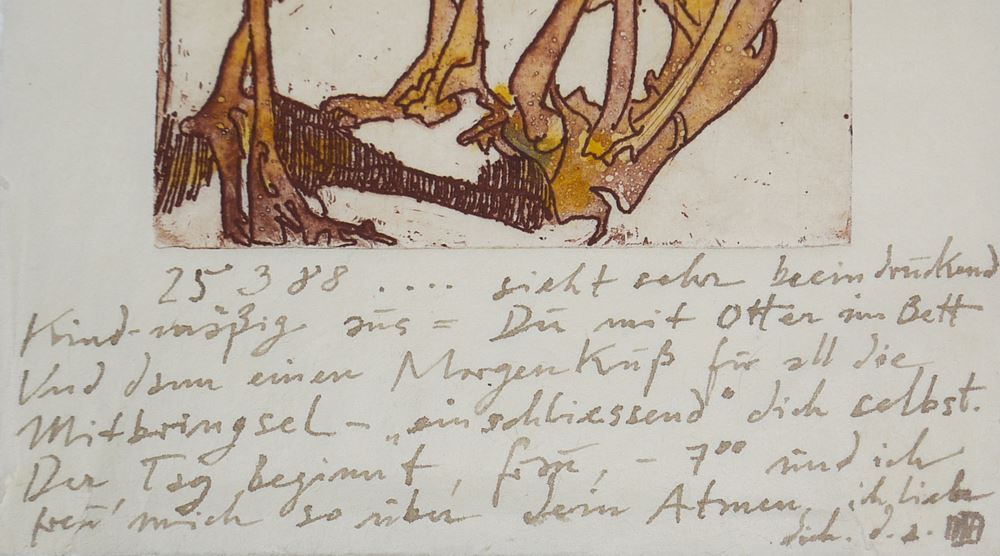 25 3 88 .... sieht sehr beeindruckend
Kind-mäßig aus = Du mit Otter im Bett
Und dann einen Morgenkuß für all die
Mitbringsel – „einschliessend" dich selbst.
Der Tag beginnt, grau, – 7⁰⁰ und ich
freu' mich so über dein Atmen, ich liebe
dich. d. a.